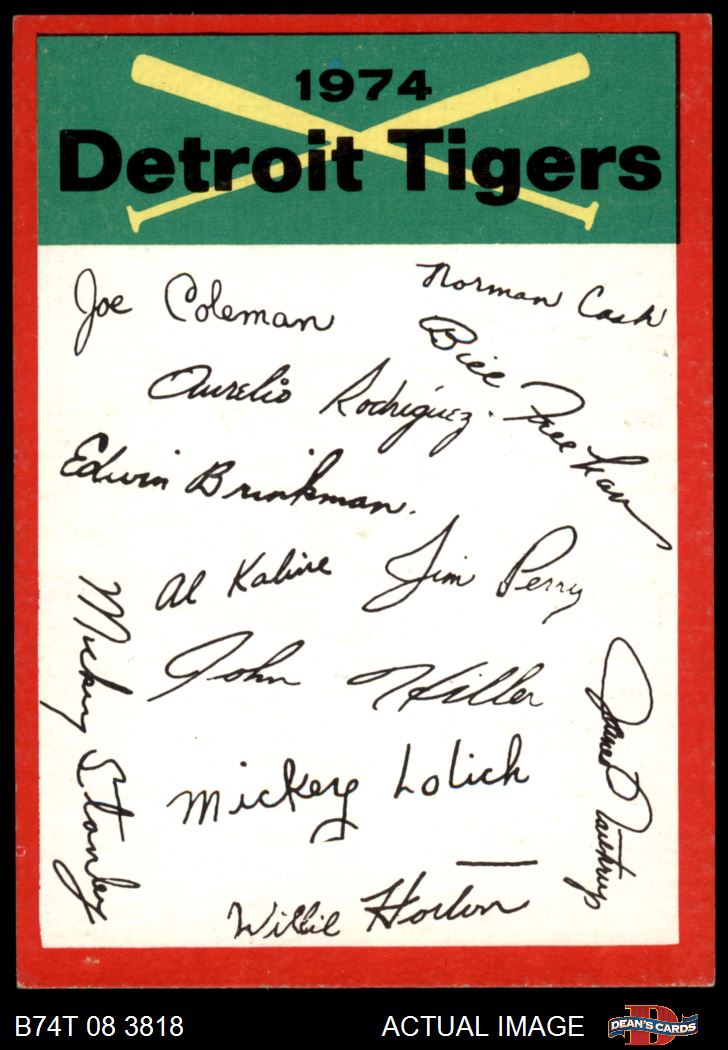 1974
Detroit Tigers
Joe Coleman
Norman Cash
Bill Freehan
Aurelio Rodriguez.
Edwin Brinkman.
Al Kaline
Jim Perry
Mickey Stanley
John Hiller
James Northrup
Mickey Lolich
Willie Horton
B74T 08 3818
ACTUAL IMAGE
D
DEAN'S CARDS